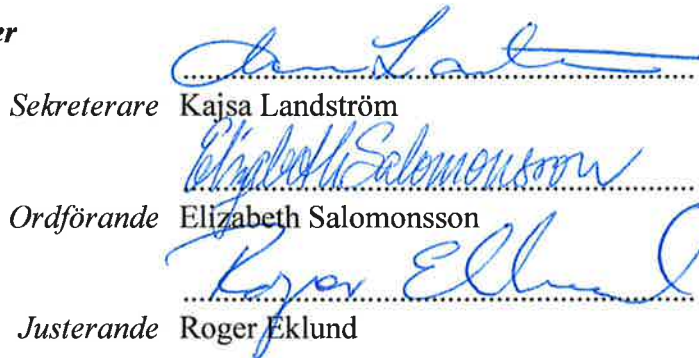 er
Sekreterare Kajsa Landström
Elizabeth Salomonsson
Ordförande Elizabeth Salomonsson
Roger Eklund
Justerande Roger Eklund